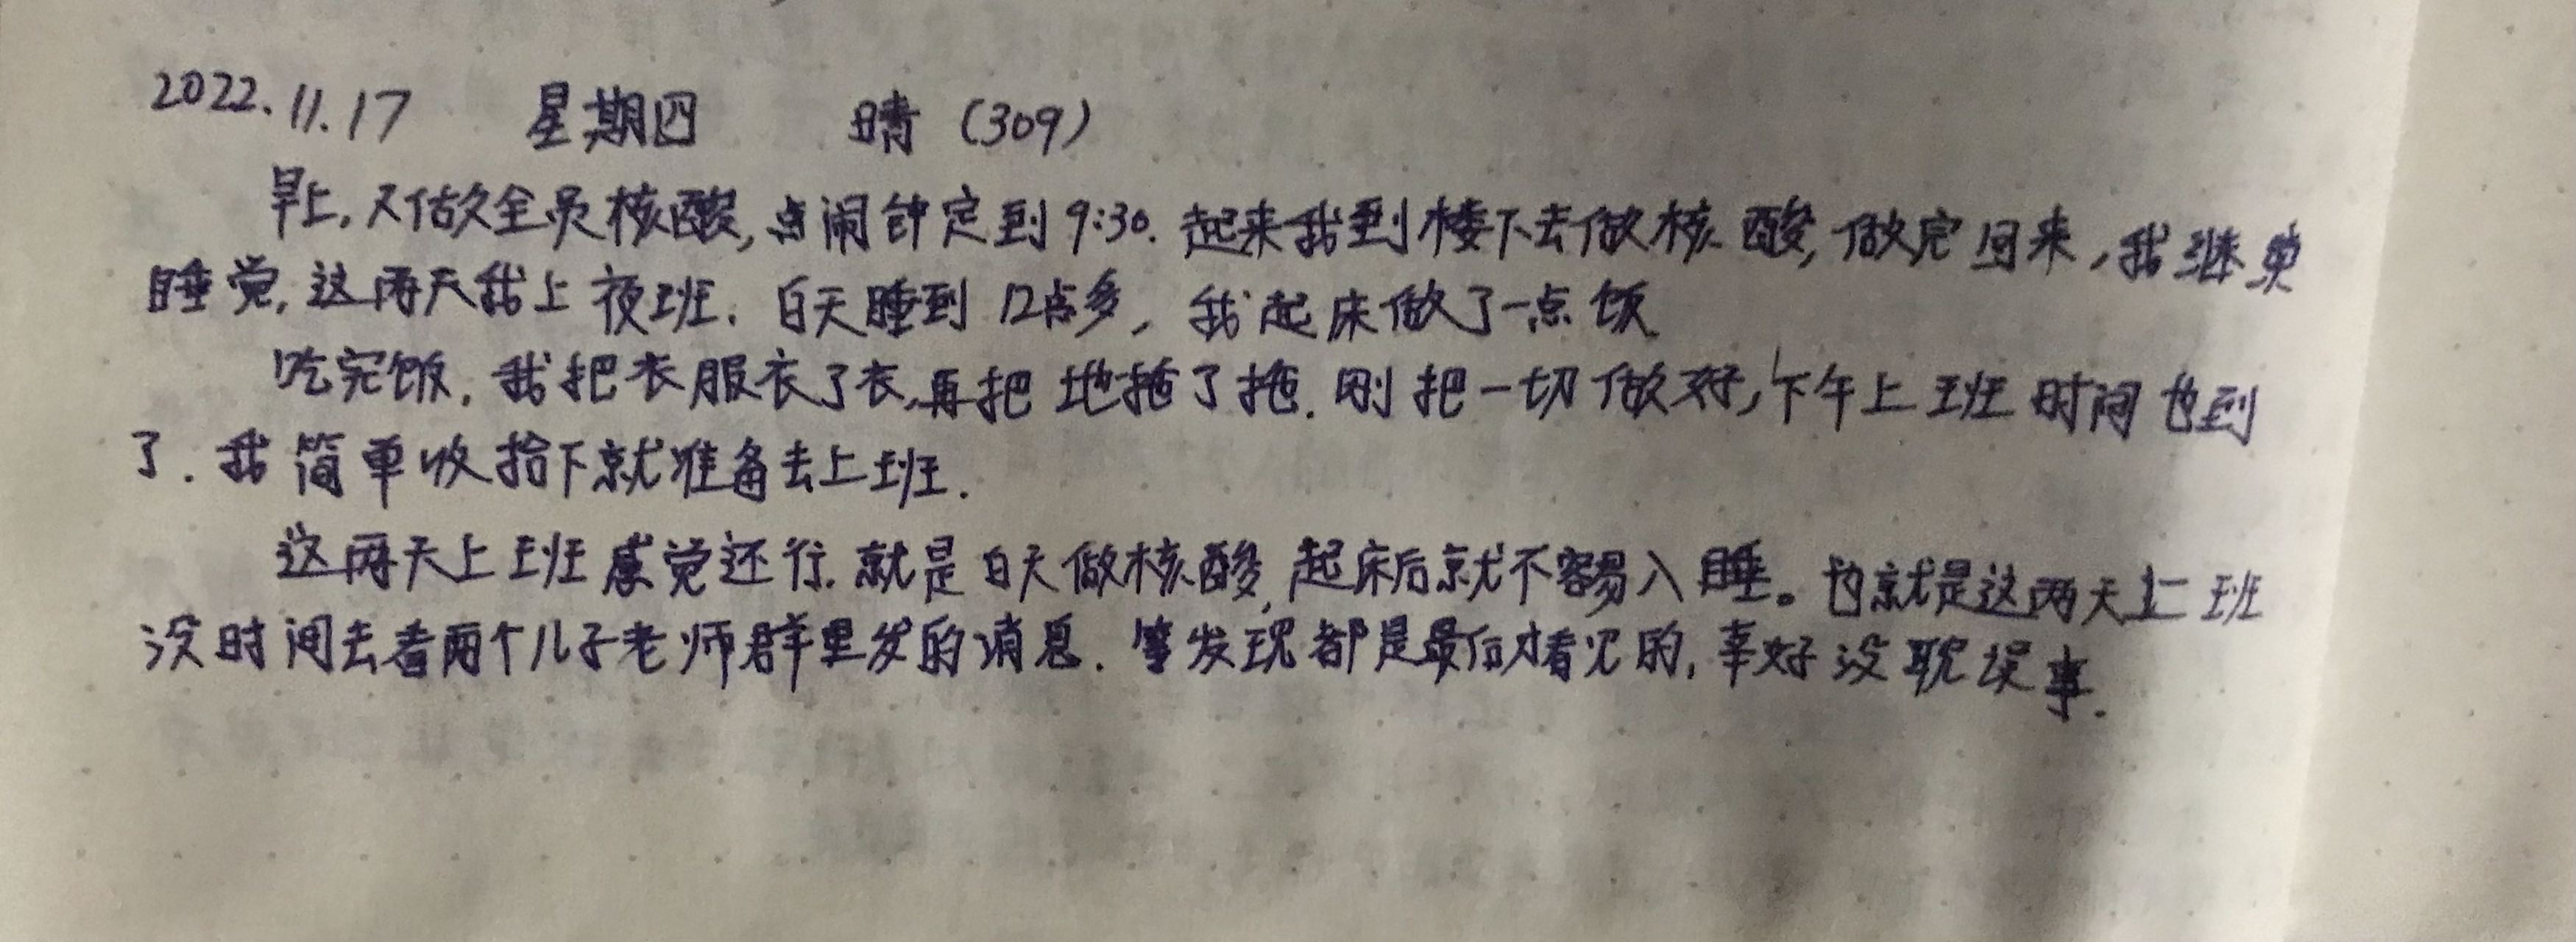 2022.11.17 星期四 晴（309）
早上,又做全员核酸,点闹钟定到9:30.起来我到楼下去做核酸,做完回来,我继续
睡觉,这两天我上夜班.白天睡到12点多,我起床做了一点饭
吃完饭,我把衣服衣了衣,再把地拖了拖.刚把一切做好,下午上班时间也到
了.我简单收拾下就准备去上班.
这两天上班感觉还行.就是白天做核酸,起床后就不容易入睡。也就是这两天上班
没时间去看两个儿子老师群里发的消息.等发现都是最后才看见的,幸好没耽误事.